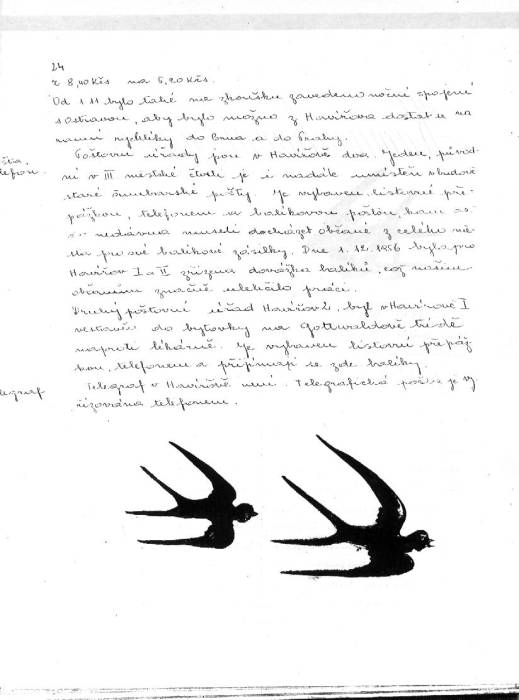 24
z 8,40 Kčs na 5,20 Kčs.
Od 1.11 bylo také na zkoušku zavedeno noční spojení
s Ostravou, aby bylo možno z Havířova dostat se na
ranní rychlíky do Brna a do Prahy.
Poštovní úřady jsou v Havířově dva. Jeden, původ-
ní v III městské čtvrti je i nadále umístěn v budově
staré šumbarské pošty. Je vybaven listovní pře-
pážkou, telefonem a balíkovou poštou, kam
nedávna museli docházet občané z celého mě-
sta pro své balíkové zásilky. Dne 1.12.1956 byla pro
Havířov I a II zřízena dovážka balíků, což našim
občanům značně ulehčilo práci.
Druhý poštovní úřad Havířov 2, byl v Havířově I
vestavěn do bytovky na Gottwaldově třídě
naproti lékárně. Je vybaven listovní přepáž-
kou, telefonem a přijímají se zde balíky.
Telegraf v Havířově není. Telegrafická pošta je vy
řizována telefonem.